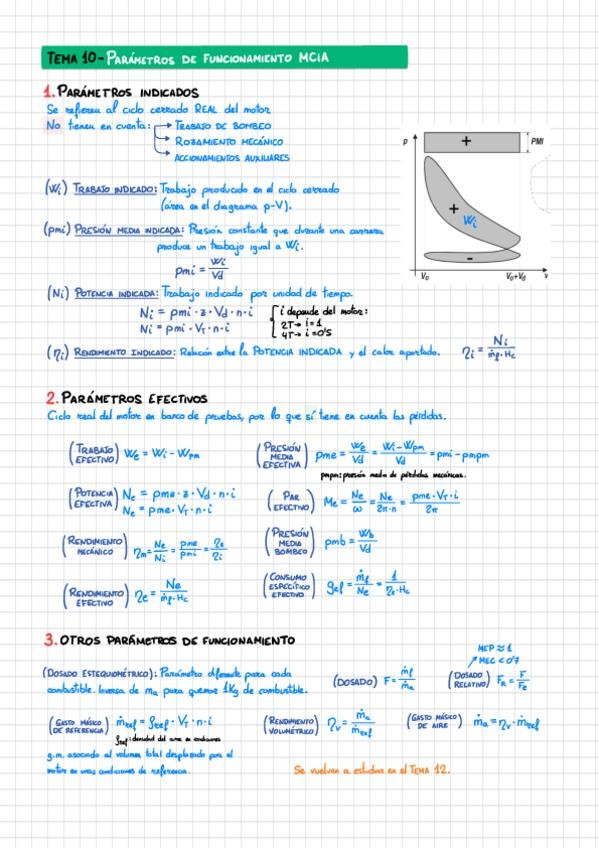 TEMA 10- PARÁMETROS DE FUNCIONAMIENTO MCIA
1. PARÁMETROS INDICADOS
Se refieren al ciclo cerrado REAL del motor
No tienen en cuenta: → TRABAJO DE BOMBEO
→ ROZAMIENTO MECÁNICO
→ ACCIONAMIENTOS AUXILIARES
p + PMI
+ Wi
-
V₀ V₀+Vd v
(Wi) TRABAJO INDICADO: Trabajo producido en el ciclo cerrado
(área en el diagrama p-V).
(pmi) PRESIÓN MEDIA INDICADA: Presión constante que durante una carrera
produce un trabajo igual a Wi.
pmi = Wi/Vd
(Ni) POTENCIA INDICADA: Trabajo indicado por unidad de tiempo.
Ni = pmi · z · Vd · n · i
Ni = pmi · VT · n · i
i depende del motor:
2T→ i=1
4T→ i=0'5
(ηi) RENDIMIENTO INDICADO: Relación entre la POTENCIA INDICADA y el calor aportado. ηi = Ni/ṁf·Hc
2. PARÁMETROS EFECTIVOS
Ciclo real del motor en banco de pruebas, por lo que sí tiene en cuenta las pérdidas.
(TRABAJO EFECTIVO) We = Wi - Wpm
(PRESIÓN MEDIA EFECTIVA) pme = We/Vd = Wi-Wpm/Vd = pmi - pmpm
pmpm: presión media de pérdidas mecánicas.
(POTENCIA EFECTIVA) Ne = pme · z · Vd · n · i
Ne = pme · VT · n · i
(PAR EFECTIVO) Me = Ne/ω = Ne/2π·n = pme·VT·i/2π
(RENDIMIENTO MECÁNICO) ηm = Ne/Ni = pme/pmi = ηe/ηi
(PRESIÓN MEDIA BOMBEO) pmb = Wb/Vd
(RENDIMIENTO EFECTIVO) ηe = Ne/ṁf·Hc
(CONSUMO ESPECÍFICO EFECTIVO) gef = ṁf/Ne = 1/ηe·Hc
3. OTROS PARÁMETROS DE FUNCIONAMIENTO
MEP ≈ 1
MEC < 0'7
(DOSADO ESTEQUIOMÉTRICO): Parámetro diferente para cada
combustible. Inversa de ma para quemar 1Kg de combustible.
(DOSADO) F = ṁf/ṁa
(DOSADO RELATIVO) FR = F/Fe
(GASTO MÁSICO DE REFERENCIA) ṁref = ρref · VT · n · i
ρref: densidad del aire en condiciones
g.m. asociado al volumen total desplazado por el
motor en unas condiciones de referencia.
(RENDIMIENTO VOLUMÉTRICO) ηv = ṁa/ṁref
(GASTO MÁSICO DE AIRE) ṁa = ηv · ṁref
Se vuelven a estudiar en el TEMA 12.